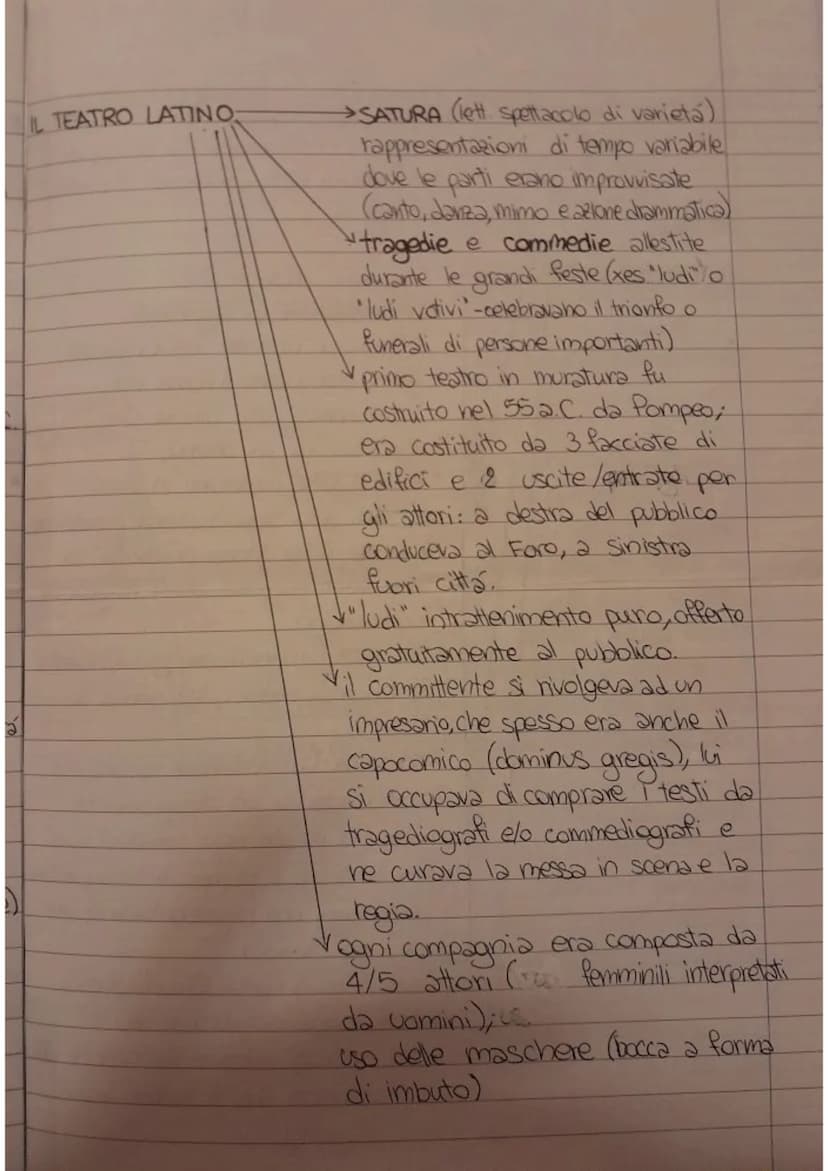 IL TEATRO LATINO → SATURA (lett. spettacolo di varietá)
rappresentazioni di tempo variabile
dove le parti erano improvvisate
(canto, danza, mimo e azione drammatica)
tragedie e commedie allestite
durante le grandi feste (xes "ludi" o
"ludi votivi" - celebravano il trionfo o
funerali di persone importanti)
primo teatro in muratura fu
costruito nel 55 a.C. da Pompeo;
era costituito da 3 facciate di
edifici e 2 uscite/entrate per
gli attori: a destra del pubblico
conduceva al Foro, a sinistra
fuori cittá.
"ludi" intrattenimento puro, offerto
gratuitamente al pubblico.
il committente si rivolgeva ad un
impresario, che spesso era anche il
capocomico (dominus gregis), lui
si occupava di comprare i testi da
tragediografi e/o commediografi e
ne curava la messa in scena e la
regia.
ogni compagnia era composta da
4/5 attori ( femminili interpretati
da uomini);
uso delle maschere (bocca a forma
di imbuto)